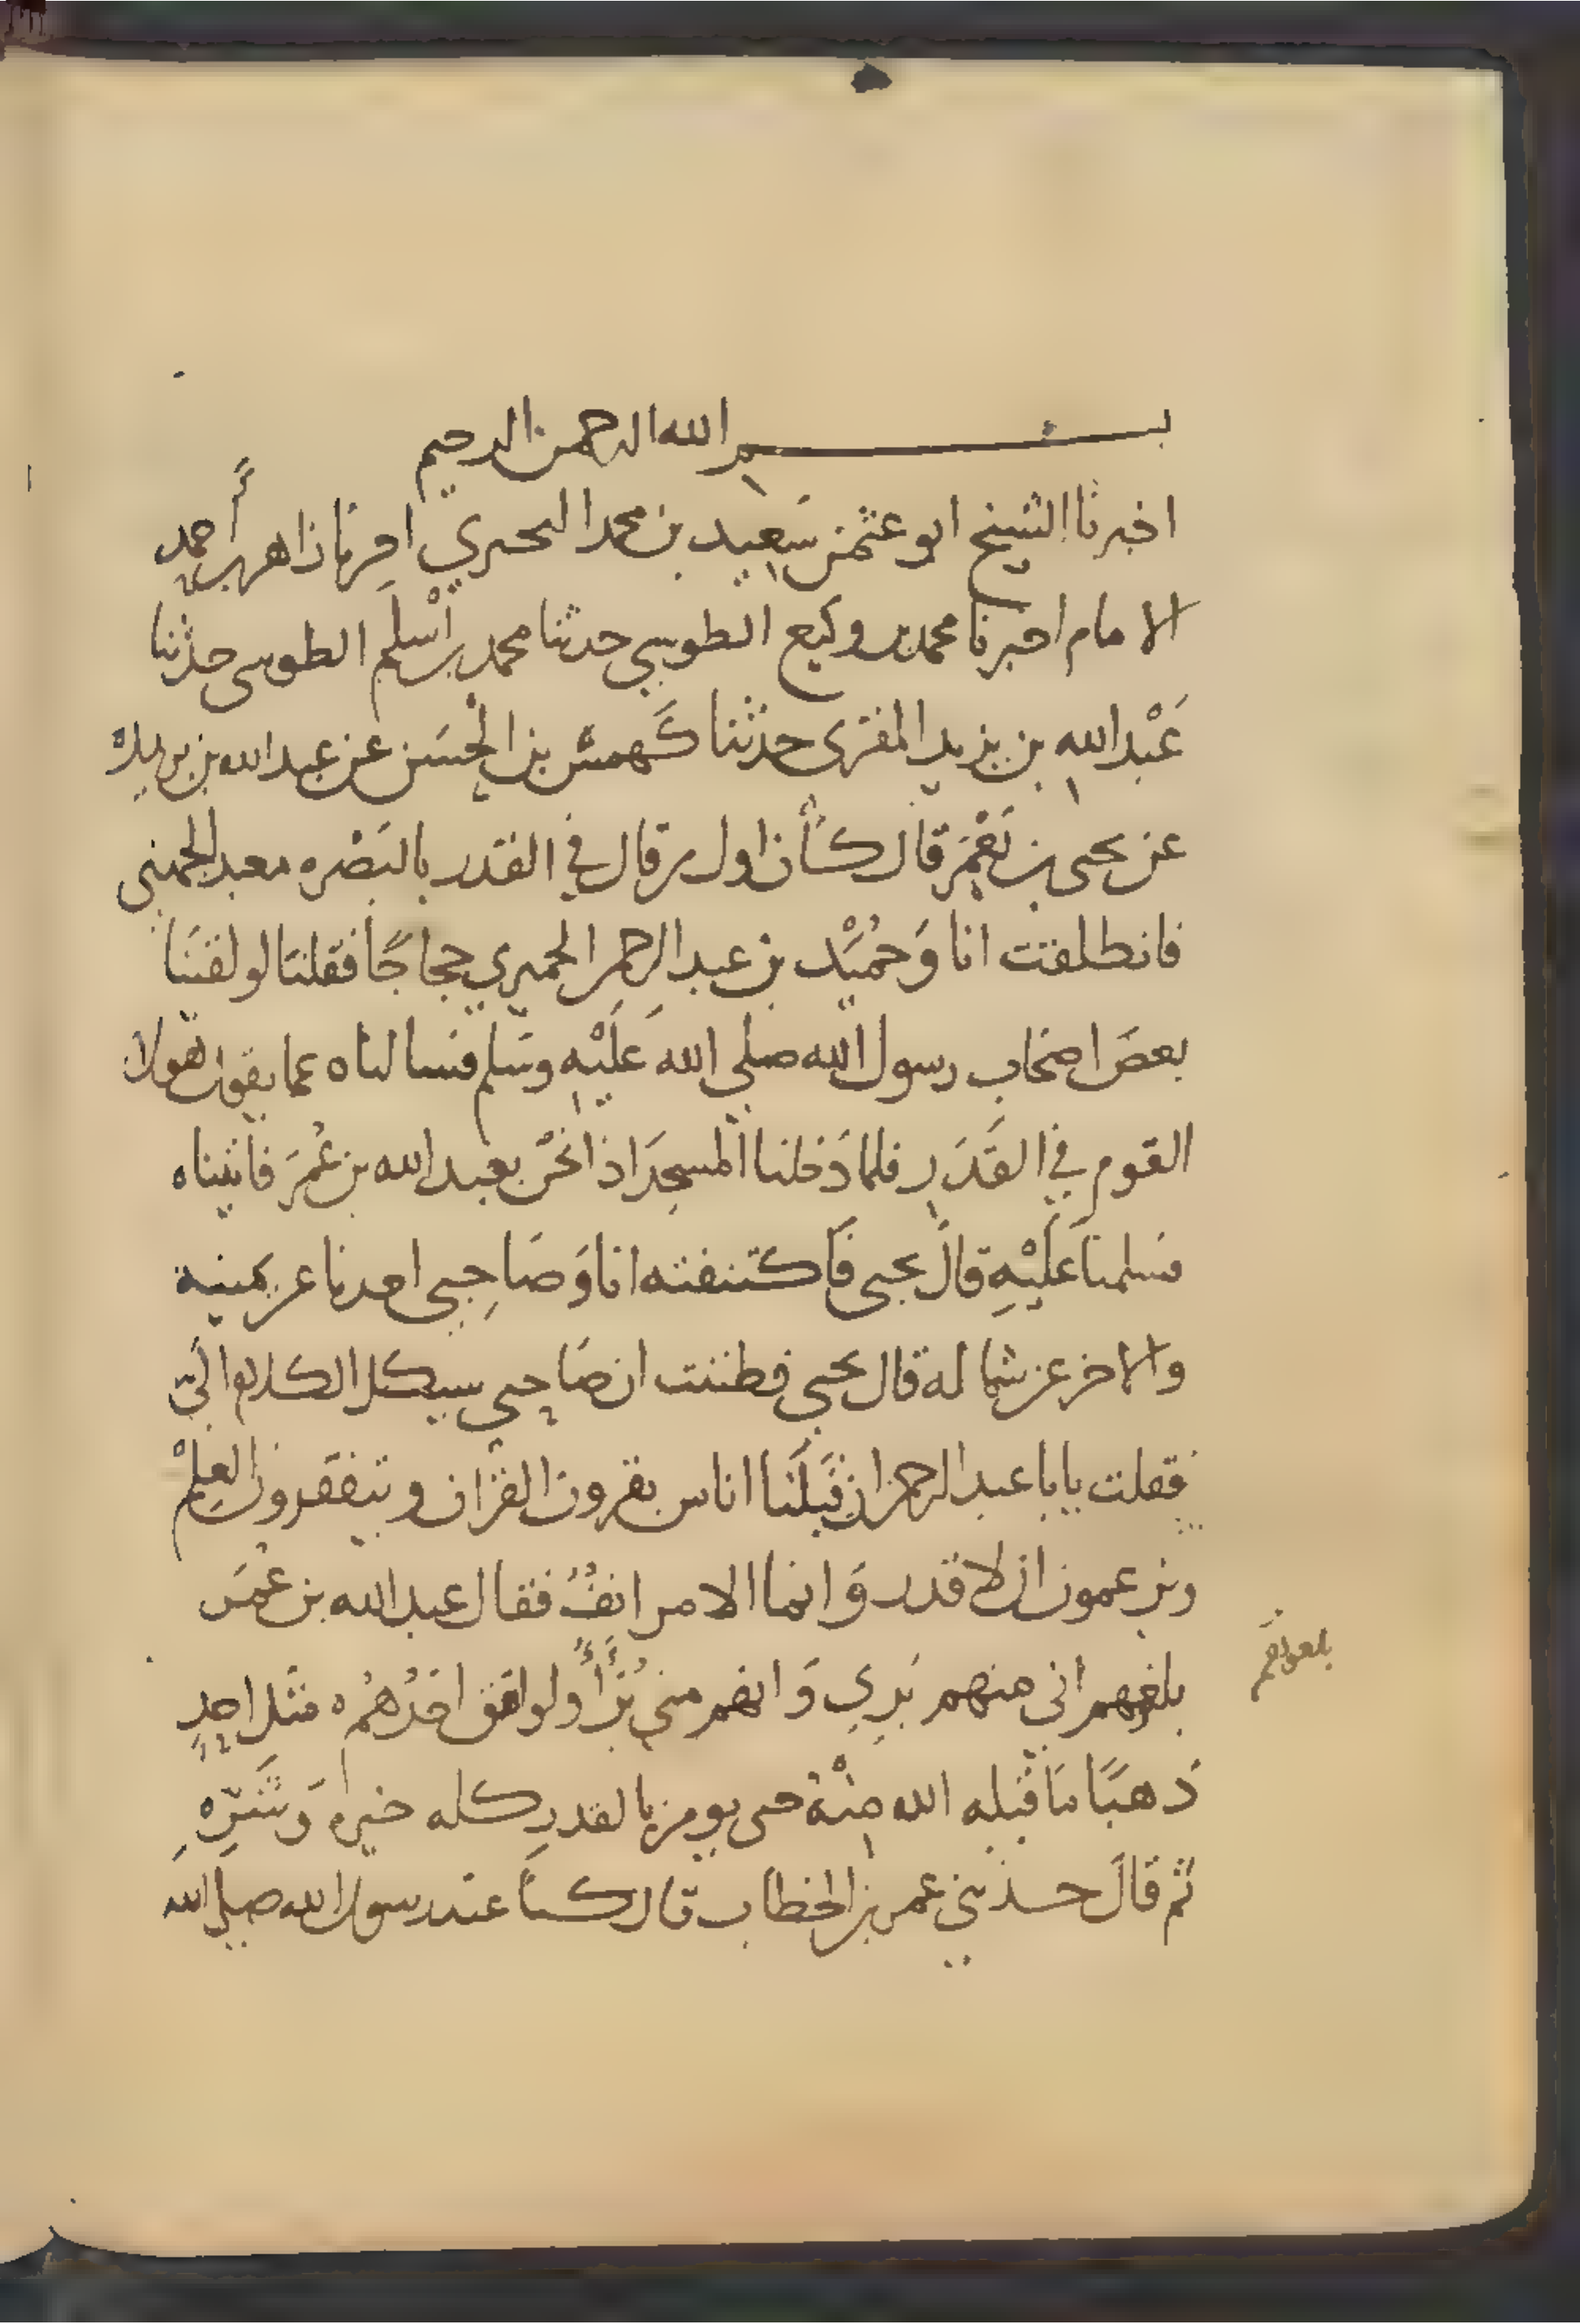 بسم الله الرحمن الرحيم
اخبرنا الشيخ ابو عثمن سَعِيد بن محمد البحيري اخبرنا زاهر بن أحمد
الامام اخبرنا محمد بن وكيع الطوسي حدثنا محمد بن أسْلَم الطوسي حدثنا
عَبْد الله بن يزيد المقرى حدثنا كَهمس بن الحْسَن عن عبد الله بن بريدة
عن يحيى بن يَعْمَر قال كان اول من قال في القدر بالبَصْره معبد الجهني
فانطلقت انا وَحُميْد بن عبد الرحمن الحميري حجاجًا فقلنا لو لقينَا
بعضَ اصحاب رسول الله صلى الله عَلَيْهِ وسَلم فسالناه عما يقول هَولا
القوم في القَدَرِ فلما دَخلنا المسجِدَ اذا نحْن بعبد الله بن عُمَرَ فاتيناه
فسلمنا عَلَيْهِ قالَ يحيى فاكتنفته انا وَصَاحِبي احدنا عن يمينه
والاخر عن شماله قال يحيى فظننت ان صَاحِبي سيكل الكلام الَيّ
فقلت يابا عبد الرحمن ان قِبَلَنا اناس يقرون القرْان ويتفقرون العِلْم
ويزعمون ان لا قدر وَانما الامر انفُ فقال عبد الله بن عُمَرَ
بلغهم اني منهم بَرِي وَانهم مني بُرَأَأُ ولو انفق احَدُهُمْ مثل احدٍ
ذهبًا مَا قَبِله الله مِنْهُ حتى يومن بالقدرِ كله خيرهِ وَشَرِّهِ
ثم قالَ حدثني عمر بن الخطاب قال كنا عند رسول الله صلى الله